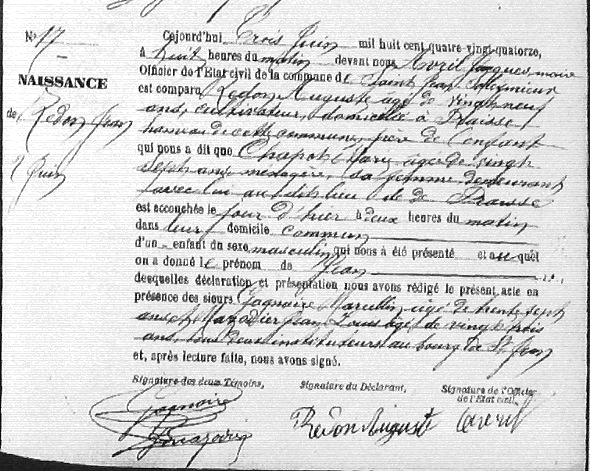 No 17
NAISSANCE
de Redon Jean
2 Juin
Cejourd'hui Trois Juin mil huit cent quatre-vingt-quatorze,
à huit heures du matin devant nous Avril Jacques, maire
Officier de l'Etat civil de la commune de Saint Jean Soleymieux
est comparu Redon Auguste âgé de vingt neuf
ans, cultivateur, domicilié à
hameau de cette commune, père de l'enfant
qui nous a dit que Chapot Marie âgée de vingt
sept ans, ménagère, sa femme demeurant
avec lui au dit lieu de
est accouchée le jour d'hier à deux heures du matin
dans leur domicile commun
d'un enfant du sexe masculin qui nous a été présenté et auquel
on a donné le prénom de Jean
desquelles déclaration et présentation nous avons rédigé le présent acte en
présence des sieurs Gagnaire Marcellin âgé de trente sept
ans et Mazodier Jean Louis âgé de vingt trois
ans, tous deux instituteurs au bourg de St Jean
et, après lecture faite, nous avons signé.
Signature des deux Témoins, Signature du Déclarant, Signature de l'Officier
de l'Etat civil,
Gagnaire Redon Auguste Avril
Mazodier